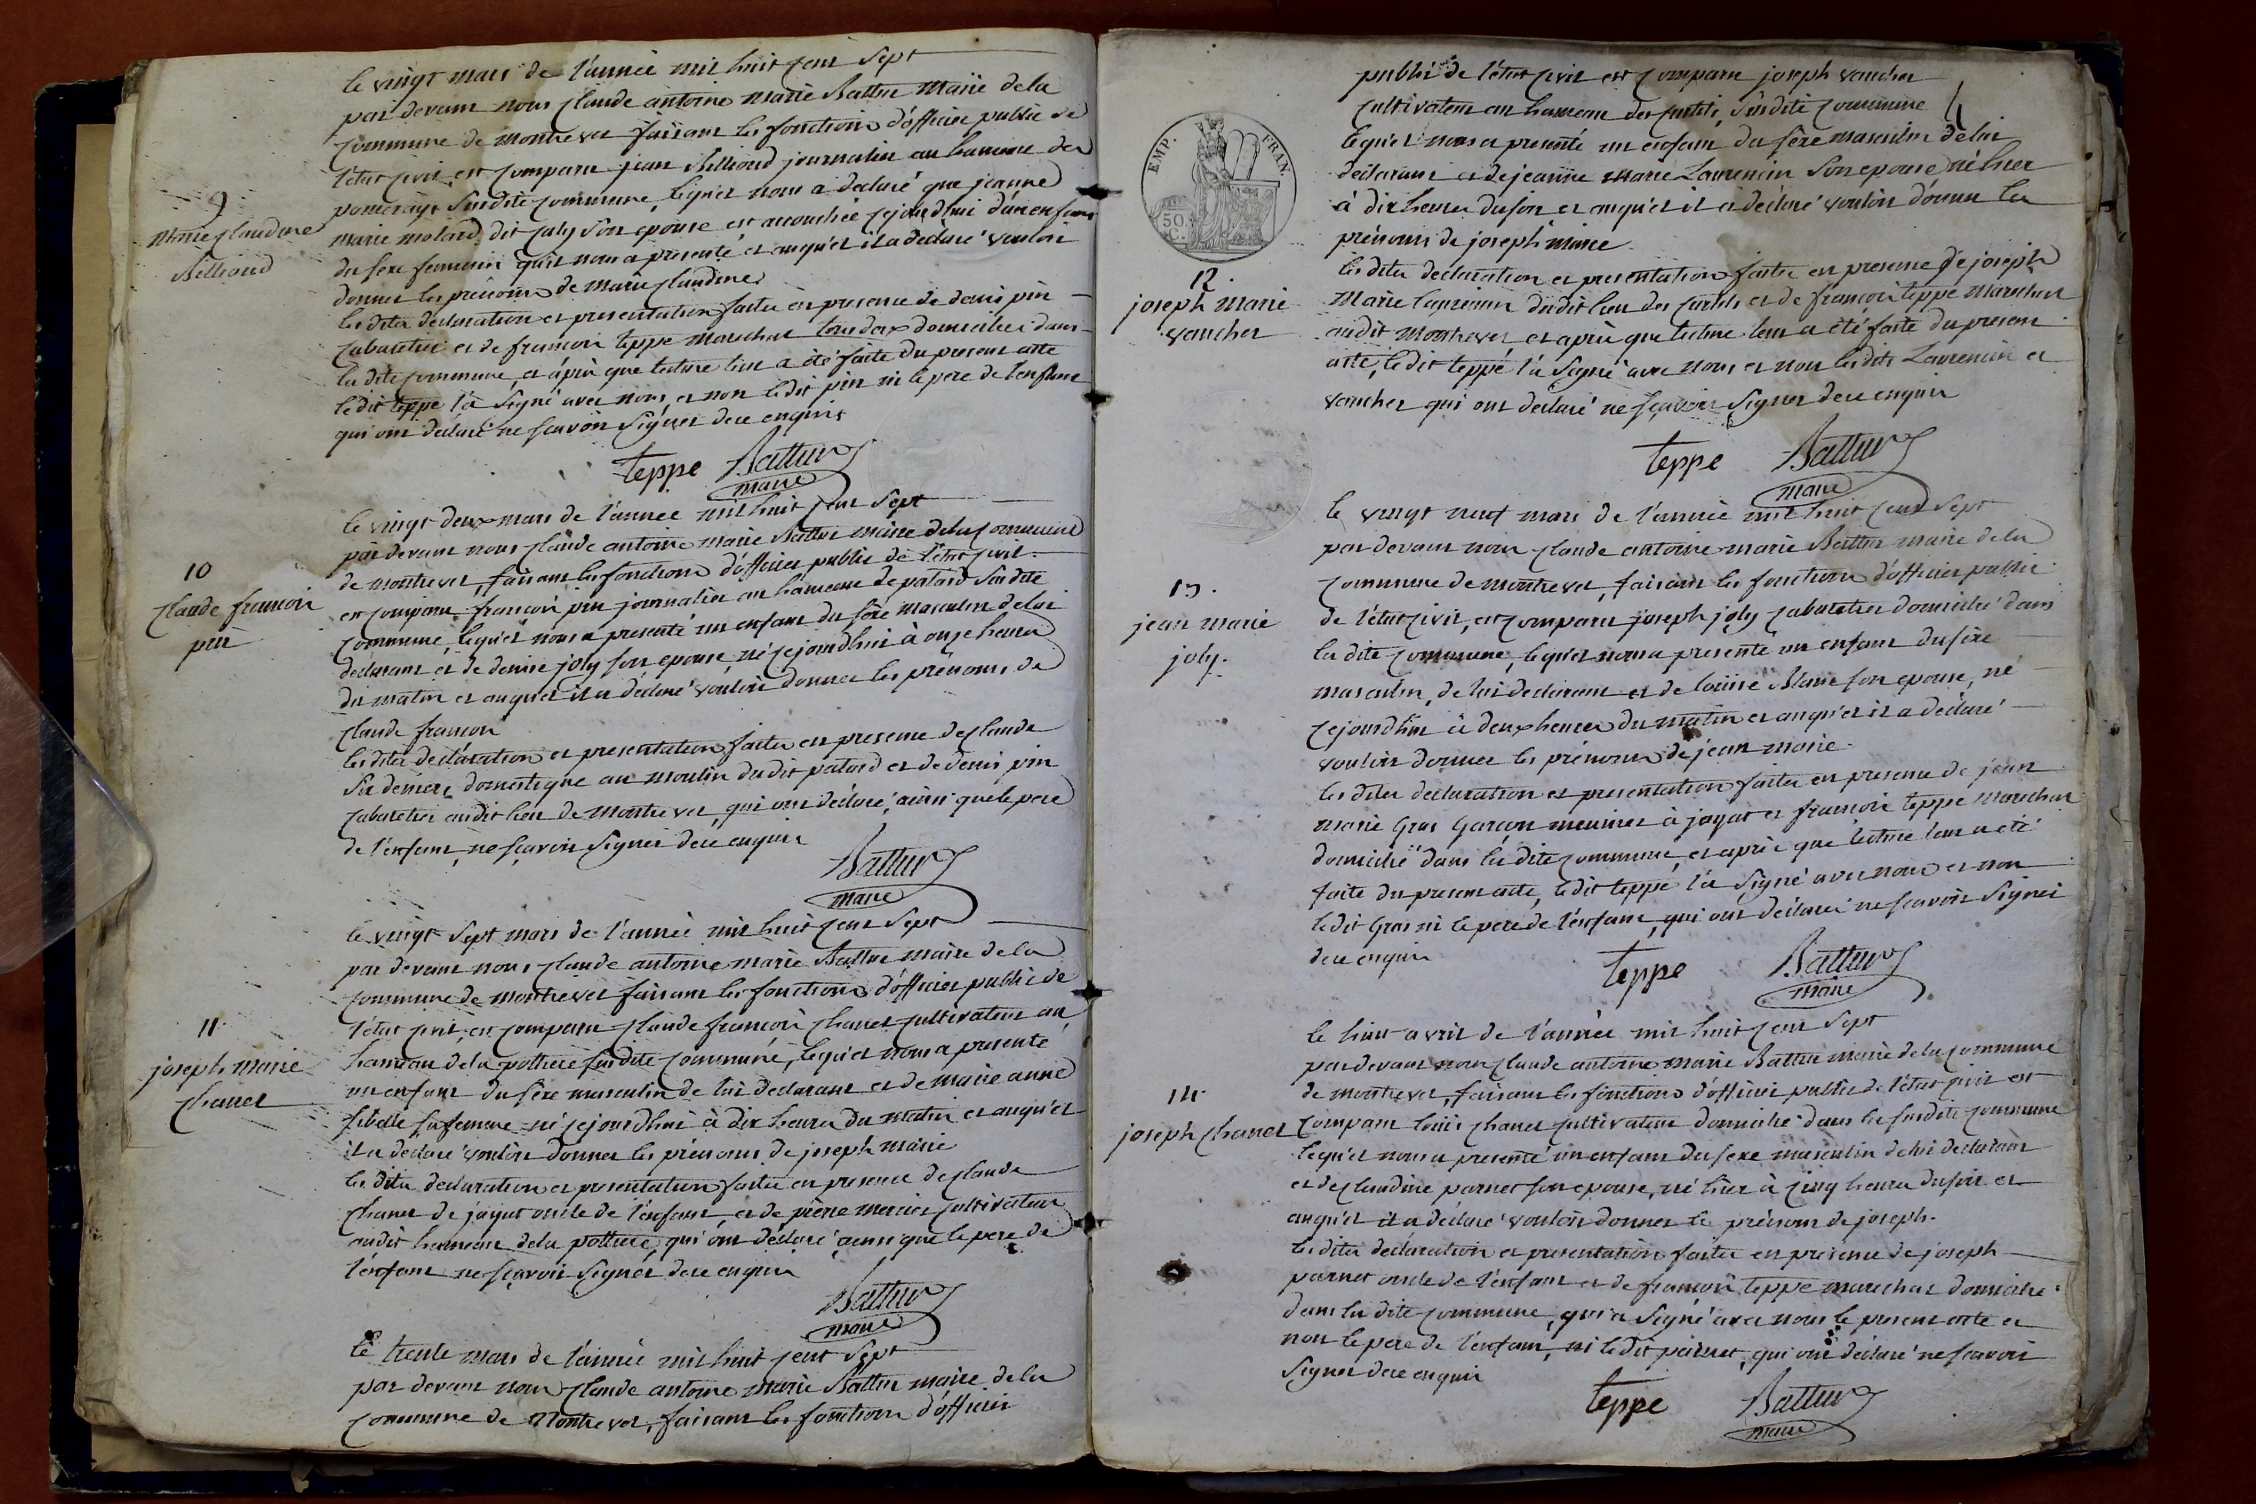 le vingt mars de l'année mil huit cent sept
par devant nous Claude antoine marie Battur Maire de la
commune de montrevel faisant les fonctions d'officier public de
l'état civil, est comparu jean Billioud journalier au hameau des
susdite commune, lequel nous a déclaré que jeanne
9
marie molard dit joly son epouse est accouchée cejourd'hui d'un enfant
marie claudine
Billioud
du sexe feminin qu'il nous a presenté et auquel il a déclaré vouloir
donner les prénoms de marie claudine
les dites declaration et presentation faites en presence de denis pin
cabaretier et de francois teppe marechal tous deux domiciliés dans
la dite commune, et après que lecture leur a été faite du present acte
le dit teppe l'a signé avec nous, et non ledit pin ni le pere de l'enfant
qui ont déclaré ne scavoir signer de ce enquis
teppe Battur
maire
le vingt deux mars de l'année mil huit cent sept
par devant nous Claude antoine marie Battur maire de la commune
de montrevel, faisant les fonctions d'officier public de l'état civil
10
Claude francois
pin
est comparu francois pin journalier au hameau de patard susdite
commune, lequel nous a presenté un enfant du sexe masculin de lui
declarant et de denise joly son epouse, né cejourd'hui à onze heures
du matin et auquel il a déclaré vouloir donner les prénoms de
Claude francois
les dites déclaration et presentation faites en presence de claude
domestique au moulin du dit patard et de denis pin
cabaretier audit lieu de montrevel, qui ont déclaré, ainsi que le pere
de l'enfant, ne scavoir signer de ce enquis
Battur
maire
le vingt sept mars de l'année mil huit cent sept
par devant nous Claude antoine marie Battur maire de la
commune de montrevel faisant les fonctions d'officier public de
11.
joseph marie
chanel
l'état civil, est comparu Claude francois chanel cultivateur au
hameau de la pottiere susdite commune, lequel nous a presenté
un enfant du sexe masculin de lui declarant et de marie anne
sa femme né cejourd'hui à dix heures du matin et auquel
il a déclaré vouloir donner les prénoms de joseph marie
les dites declaration et presentation faites en presence de claude
chanel de jayat oncle de l'enfant, et de pierre mercier cultivateur
audit hameau de la pottiere, qui ont déclaré, ainsi que le pere de
l'enfant ne scavoir signer de ce enquis
Battur
maire
le trente mars de l'année mil huit cent sept
par devant nous Claude antoine marie Battur maire de la
commune de Montrevel, faisant les fonctions d'officier
EMP. FRAN.
50
C.
public de l'état civil est comparu joseph vaucher
cultivateur au hameau des curtils, susdite commune
lequel nous a presenté un enfant du sexe masculin de lui
déclarant et de jeanne marie Laurencin son epouse né hier
à dix heures du soir et auquel il a déclaré vouloir donner les
prénoms de joseph marie
12.
joseph marie
vaucher
les dites declaration et presentation faites en presence de joseph
Marie Laurencin dudit lieu des curtils et de francois teppe marechal
audit montrevel et après que lecture leur a été faite du present
acte, le dit teppe l'a signé avec nous et non lesdits Laurencin et
vaucher qui ont déclaré ne scavoir signer de ce enquis
teppe Battur
maire
le vingt neuf mars de l'année mil huit cent sept
par devant nous Claude antoine marie Battur maire de la
13.
jean marie
joly.
commune de montrevel, faisant les fonctions d'officier public
de l'état civil, est comparu joseph joly cabaretier domicilié dans
la dite commune, lequel nous a presenté un enfant du sexe
masculin, de lui declarant et de louise Blanc son epouse, né
cejourd'hui à deux heures du matin et auquel il a déclaré
vouloir donner les prénoms de jean marie.
les dites declaration et presentation faites en presence de jean
marie Gras garçon meunier à jayat et francois teppe marechal
domicilié dans la dite commune, et après que lecture leur a été
faite du present acte, ledit teppe l'a signé avec nous et non
ledit Gras ni le pere de l'enfant, qui ont déclaré ne scavoir signer
de ce enquis
teppe Battur
maire
le huit avril de l'année mil huit cent sept
par devant nous Claude antoine marie Battur maire de la commune
de montrevel, faisant les fonctions d'officier public de l'état civil est
14.
joseph chanel
comparu louis chanel cultivateur domicilié dans la susdite commune
lequel nous a presenté un enfant du sexe masculin de lui declarant
et de claudine parnet son epouse, né hier à cinq heures du soir et
auquel il a déclaré vouloir donner le prénom de joseph.
les dites déclaration et presentation faites en presence de joseph
parnet oncle de l'enfant et de francois teppe marechal domicilié
dans la dite commune, qui a signé avec nous le present acte et
non le pere de l'enfant, ni ledit parnet, qui ont déclaré ne scavoir
signer de ce enquis
teppe Battur
maire